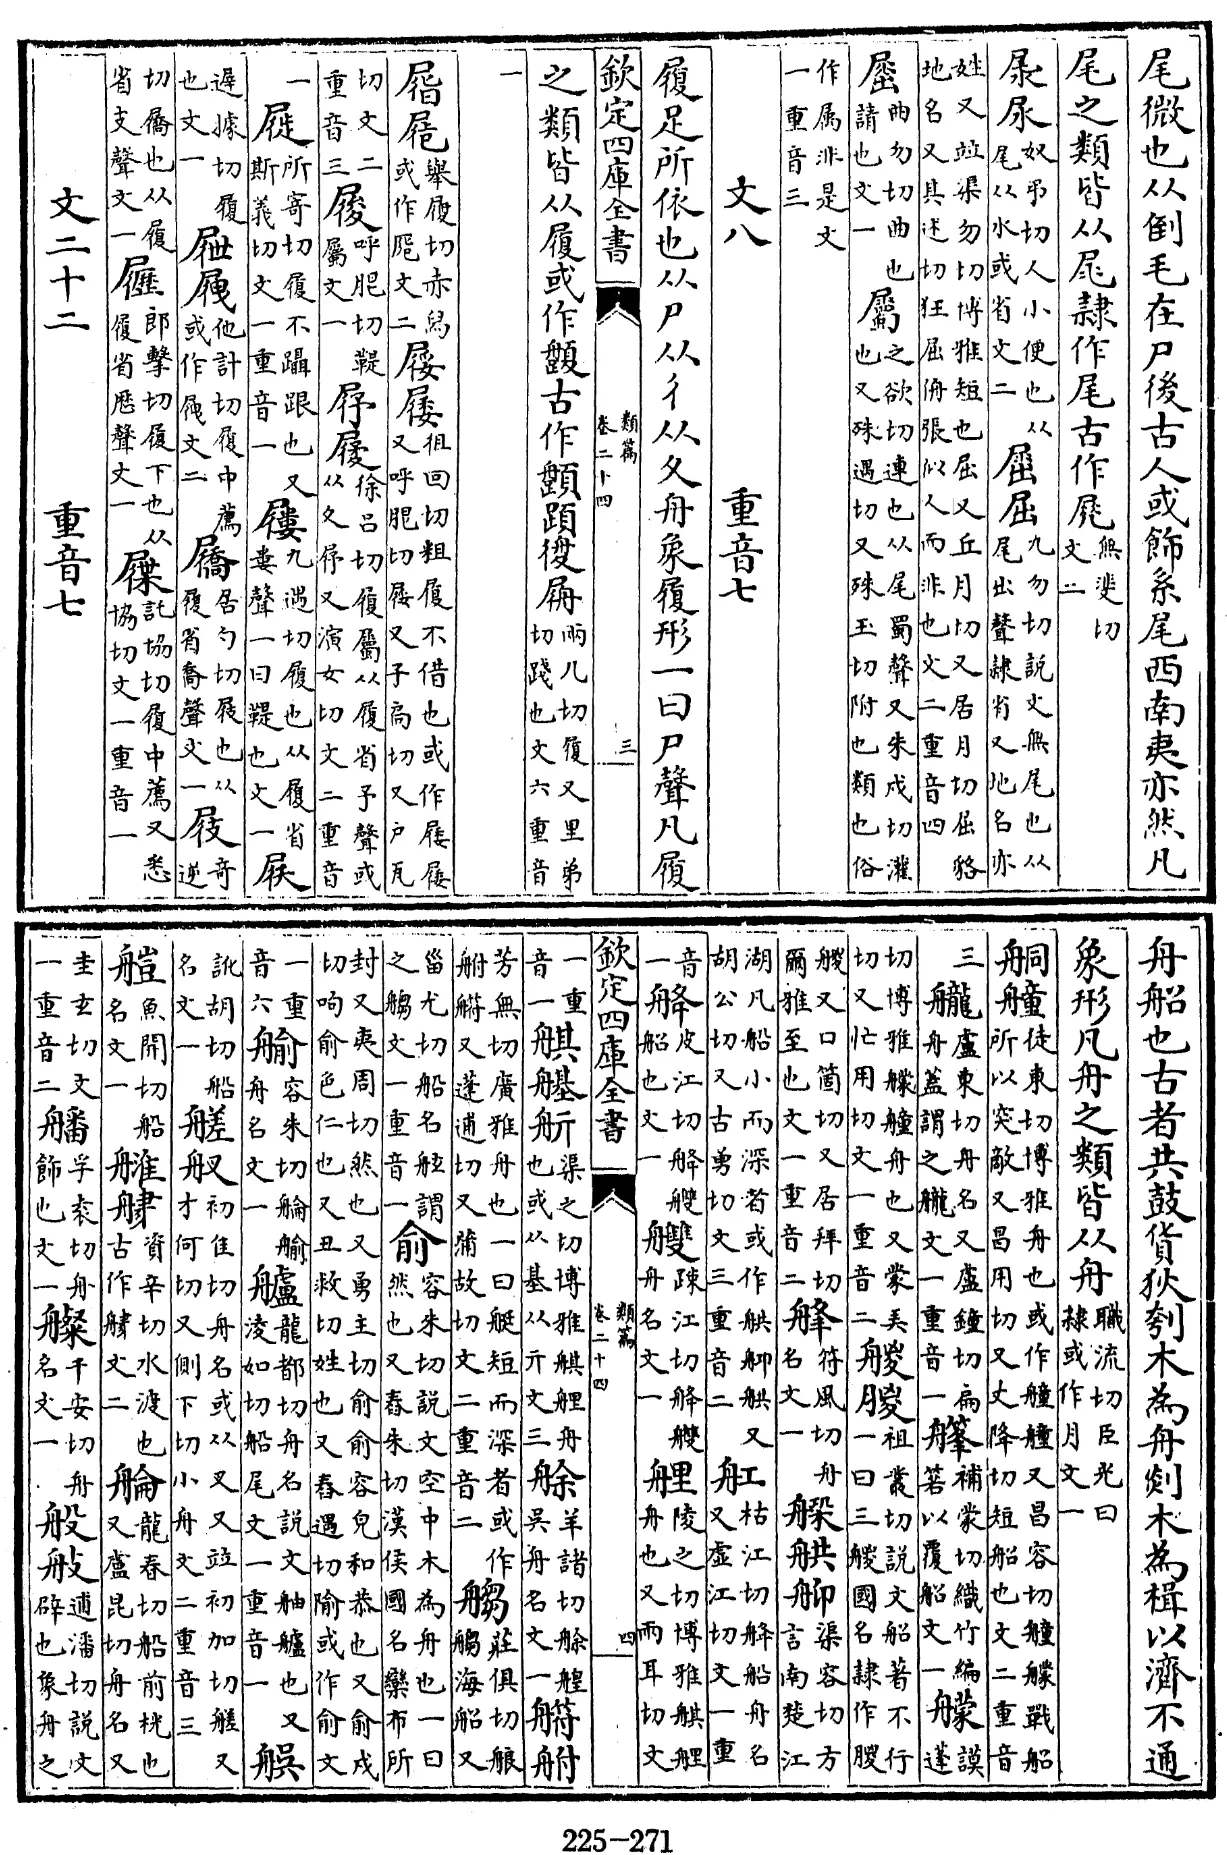 尾微也从倒毛在尸後古人或飾系尾西南夷亦然凡
尾之類皆从尾隸作尾古作𡱕無斐切文二
㞙尿奴弔切人小便也从尾从水或省文二 屈屈九勿切說文無尾也从尾出聲隸省又地名亦
姓又竝渠勿切博雅短也屈又丘月切又居月切屈貉地名又其述切狂屈侜張似人而非也文二重音四
𡲬曲勿切曲也請也文一 屬之欲切連也从尾蜀聲又朱戍切灌也又殊遇切又殊玉切附也類也俗
作属非是文一重音三
文八 重音七
履足所依也从尸从彳从夂舟象履形一曰尸聲凡履
欽定四庫全書 類篇 卷二十四 三
之類皆从履或作𩕓古作顕䪴𢕙㞛兩几切履又里弟切踐也文六重音
一
屆屗舉履切赤舄或作屗文二 屡屦徂回切粗履不借也或作屡屡又呼肥切屦又子禹切又戶瓦
切文二重音三 㞨呼肥切鞮屬文一 㞒履徐呂切履屬从履省予聲或从夂㞒又演女切文二重音
一 屣所寄切履不躡跟也又斯義切文一重音一 屨九遇切履也从履省婁聲一曰鞮也文一 㞏
遲據切履也文一 屉㞞他計切履中薦或作㞞文二 屩居勺切屐也从履省喬聲文一 屐奇逆
切屩也从履省支聲文一 㞕郎擊切履下也从履省厤聲文一 屧託協切履中薦又悉協切文一重音一
文二十二 重音七
舟船也古者共鼓貨狄刳木為舟剡木為楫以濟不通
象形凡舟之類皆从舟職流切臣光曰隸或作月文一
舸艟徒東切博雅舟也或作艟艟又昌容切艟艨戰船所以突敵又昌用切又丈降切短船也文二重音
三 艫盧東切舟名又盧鐘切扁舟蓋謂之艫文一重音一 篷補蒙切織竹編箬以覆船文一 艨謨蓬
切博雅艨艟舟也又蒙弄切又忙用切文一重音二 艐朡祖叢切說文船著不行一曰三艐國名隸作朡
艐又口箇切又居拜切爾雅至也文一重音二 艂符風切舟名文一 艉䑪䑲渠容切方言南楚江
湖凡船小而深者或作䑪䑲䑪又胡公切又古勇切文三重音二 舡枯江切舽船舟名又虛江切文一重
音一 舽皮江切舽艭船也文一 艭疎江切舽艭舟名文一 艃陵之切博雅艃艃舟也又而耳切文
一重音一 䑴䑴䑢渠之切博雅䑴艃舟也或从基从亓文三 艅羊諸切艅艎吳舟名文一 䒀䑧
芳無切廣雅舟也一曰艇短而深者或作䑧䒀又蓬逋切又蒲故切文二重音二 䑳莊俱切艆䑳海船又
甾尤切船名舷謂之䑳文一重音一 俞容朱切說文空中木為舟也一曰然也又舂朱切漢侯國名欒布所
封又夷周切然也又勇主切俞俞容皃和恭也又俞戍切呴俞色仁也又丑救切姓也又舂遇切隃或作俞文
一重音六 艊容朱切艑艊舟名文一 艫龍都切舟名說文舳艫也又凌如切船尾文一重音一 䑩
訛胡切船名文一 艖舣初佳切舟名或从叉又竝初加切艖又才何切又側下切小舟文二重音三
䑽魚開切船名文一 䑥䑭資辛切水渡也古作䑭文二 艑龍春切船前桄也又盧昆切舟名又
圭玄切文一重音二 䑺孚袁切舟飾也文一 䑶千安切舟名文一 般舨逋潘切說文辟也象舟之
225-271